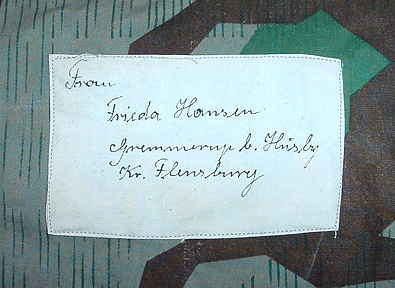 Frau
Frieda Hansen
Gremmerup b. Hüsby
Kr. Flensburg